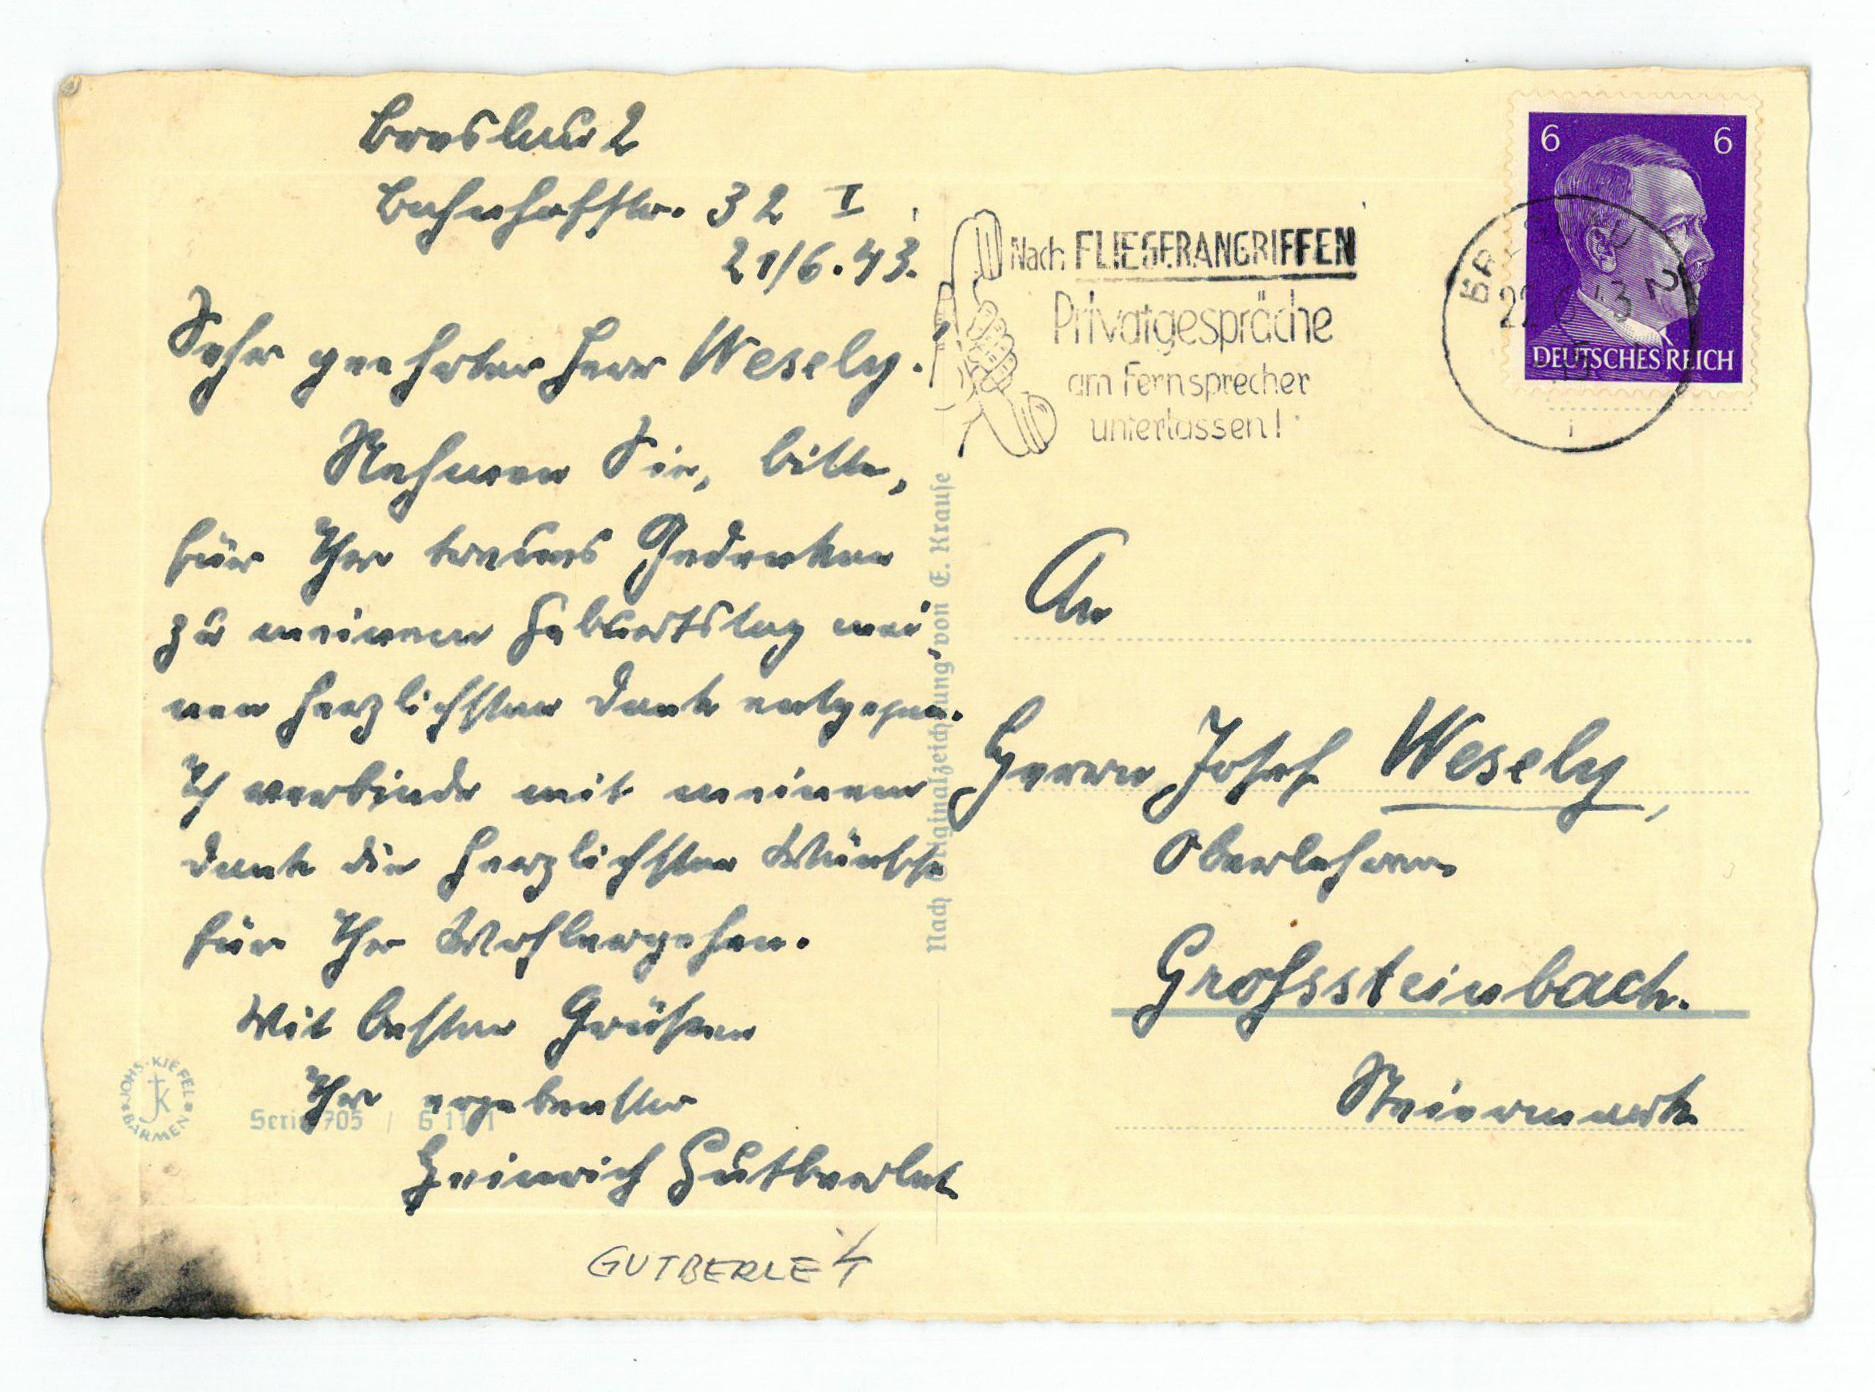 Breslau 2
Bahnhofstr. 32 I
21/6.43.
Sehr geehrter Herr Wesely!
Nehmen Sie, bitte,
für Ihr treues Gedenken
zu meinem Geburtstag mei
nen herzlichsten Dank entgegen.
Ich verbinde mit meinem
Dank die herzlichsten Wünsche
für Ihr Wohlergehen.
Mit besten Grüßen
Ihr ergebenster
Heinrich Gutberlet
GUTBERLET
JOHS. KIEFEL
BARMEN
JK
Serie 705 / G
Nach Originalzeichnung von E. Krause
Nach FLIEGERANGRIFFEN
Privatgespräche
am Fernsprecher
unterlassen!
6 6
DEUTSCHES REICH
BRESLAU 2
22. 6. 43
An
Herrn Josef Wesely,
Oberlehrer
Grossteinbach.
Steiermark